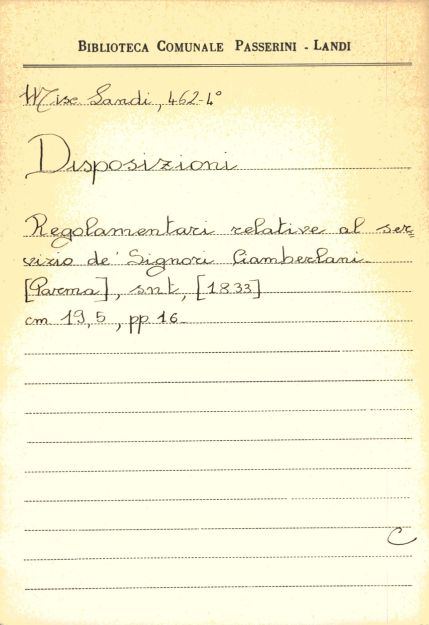 BIBLIOTECA COMUNALE PASSERINI - LANDI
Misc Landi, 462-4°
Disposizioni
Regolamentari relative al ser=
vizio de' Signori Ciamberlani.
[Parma], snt, [1833]
cm 19,5, pp 16.
C